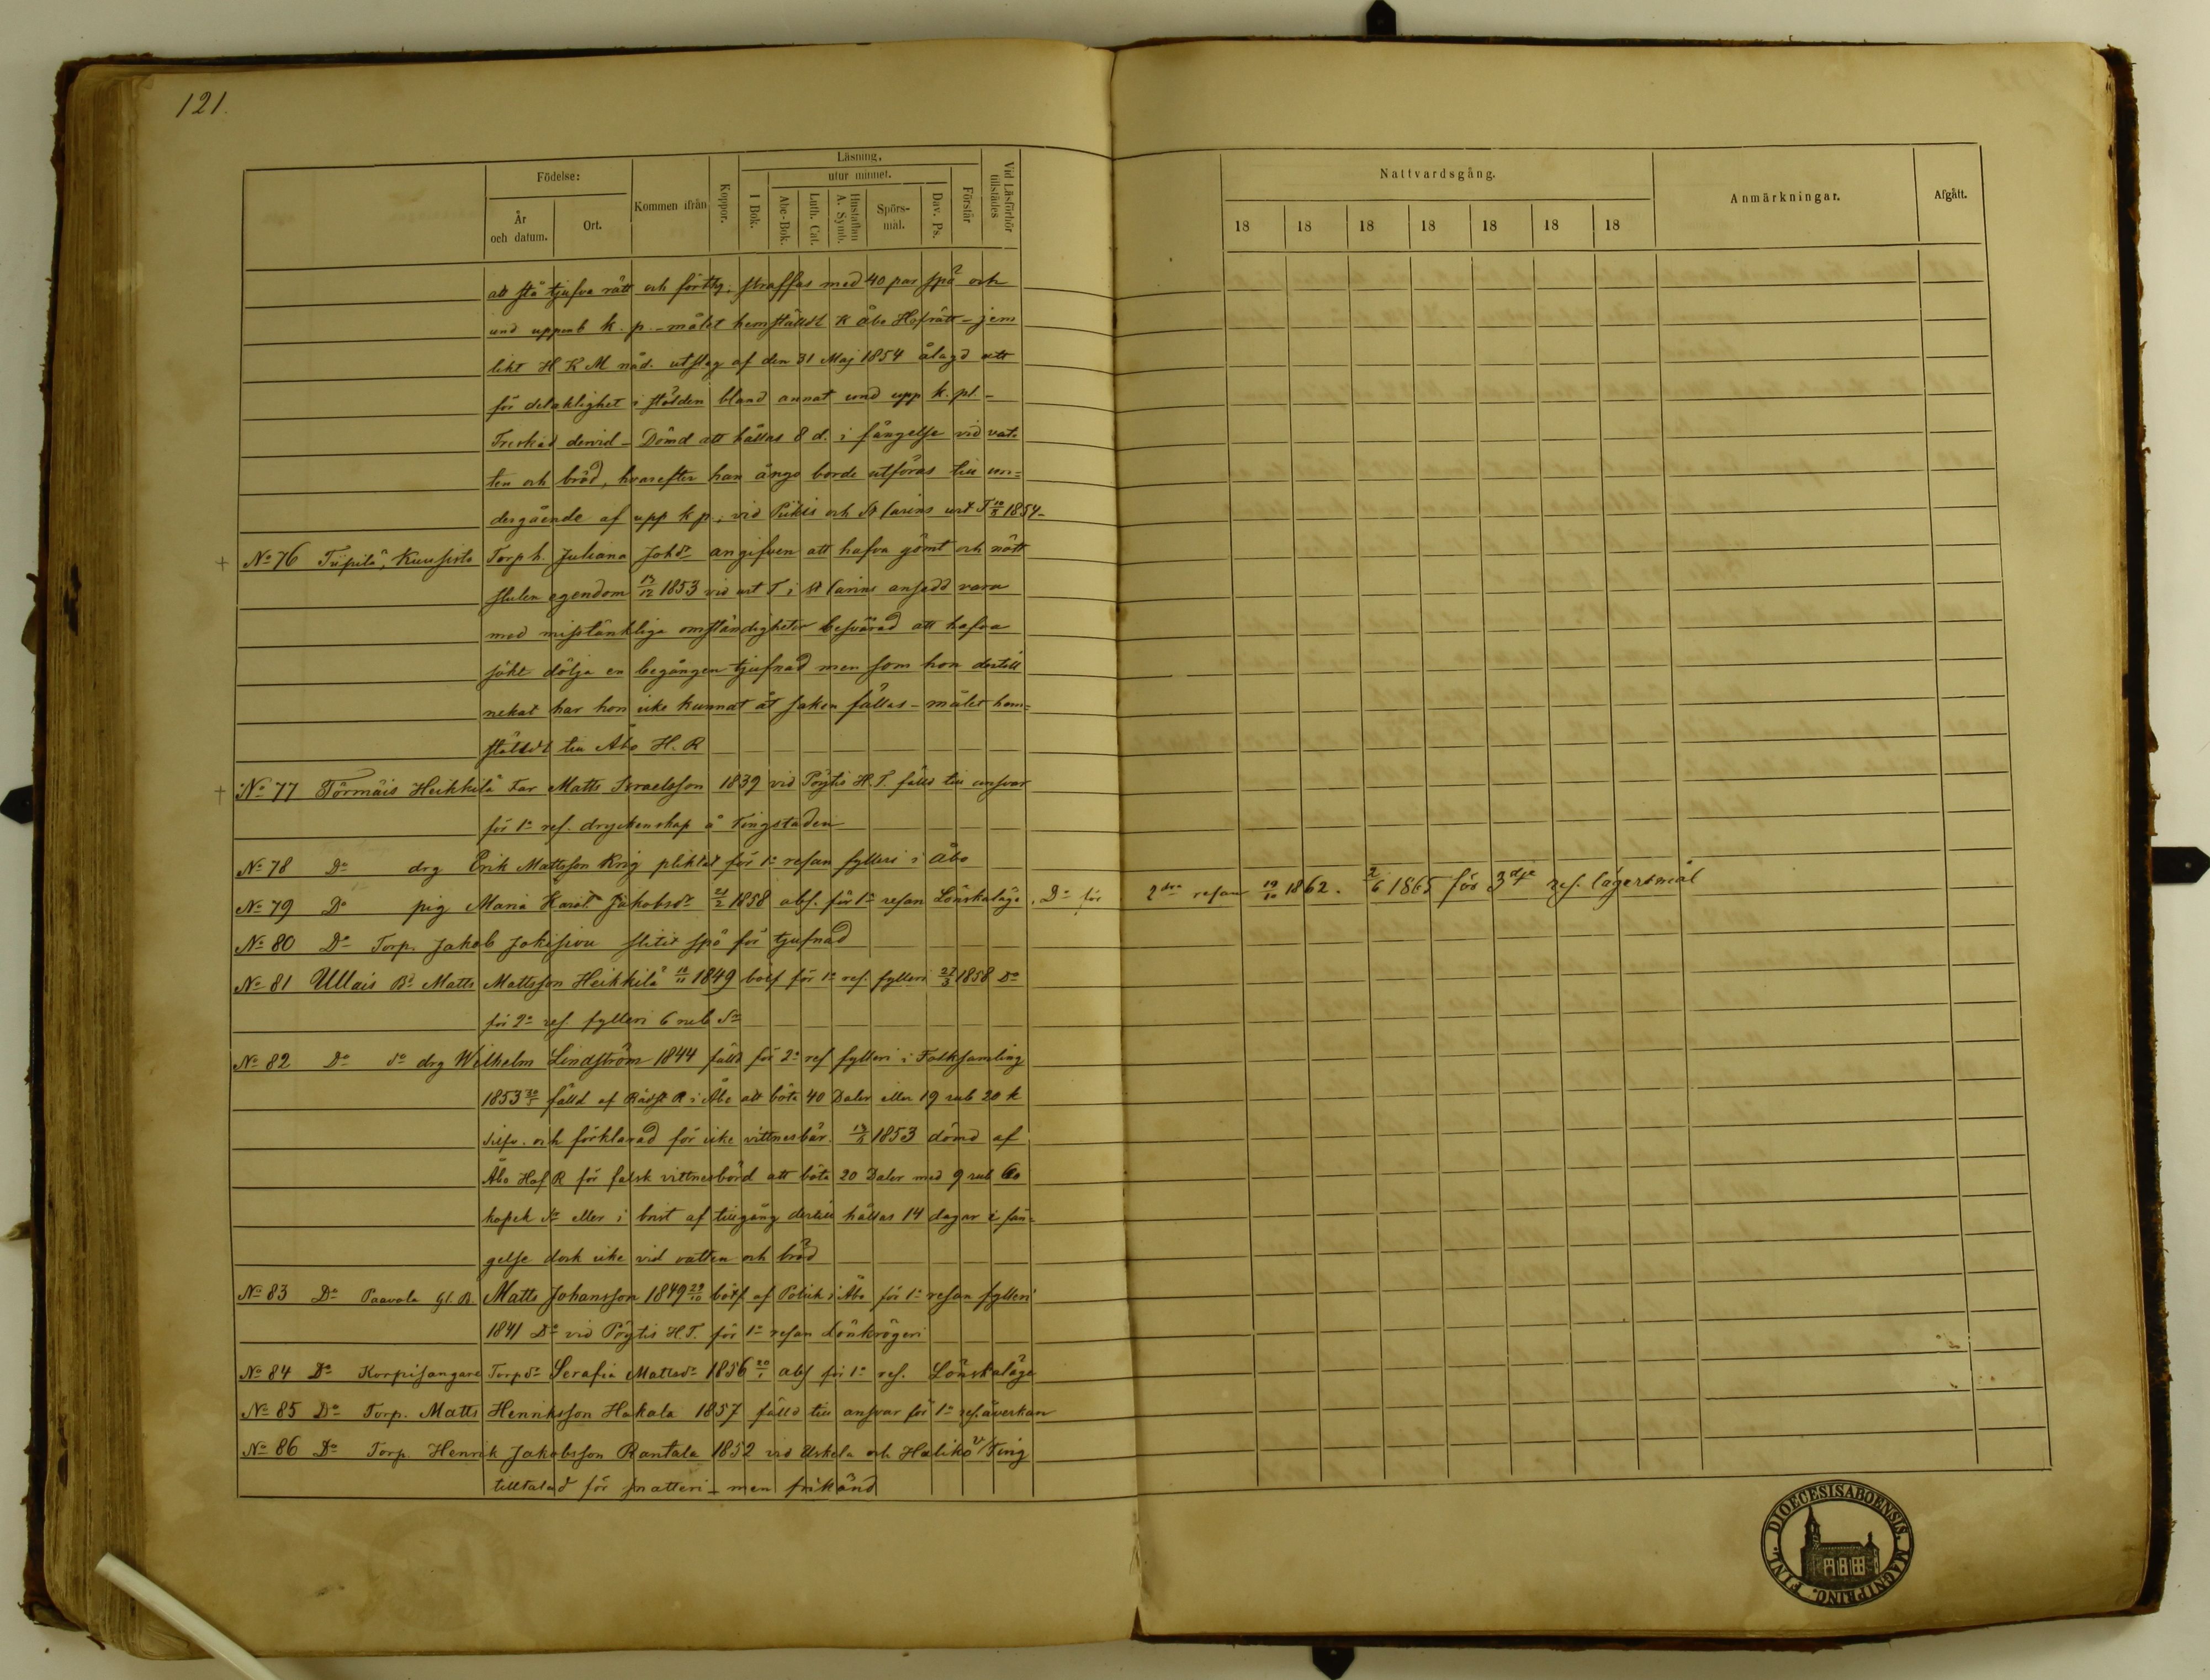 121.
Födelse:
År och datum.
Ort.
Kommen ifrån
Koppor.
Läsning,
I Bok.
utur minnet.
Abc-Bok.
Luth. Cat.
Hustaflan A. Symb.
Spörs-mål.
Dav. Ps.
Förstår
Vid Läsförhör tillstädes
Nattvardsgång.
18 18 18 18 18 18 18
Anmärkningar.
Afgått.
att stå tjufva rätt och förthy, straffas med 40 par spö och
und uppenb k. p. - målet hemstäldt K Åbo Hofrätt - jem
likt H K M nåd. utslag af den 31 Maj 1854 ålagd att
för delaktighet i stölden bland annat und upp k. pl. -
Treskad dervid - Dömd att hållas 8 d. i fängelse vid vat-
ten och bröd, hvarefter han ånyo borde utföras till un=
dergående af upp k p, vid Pikis och St Carins urt T 1854 -
+ No 76 Tiipilä, Kuusisto Torp h. Juliana Johdr angifven att hafva gömt och nött
stulen egendom 13/12 1853 vid urt T i St Carins ansedd vara
med misstänkliga omständigheter besvärad att hafva
sökt dölja en begången tjufnad men som hon dertill
nekat har hon icke kunnat åt saken fällas - målet hem=
stäldt till Åbo H. R
+ No 77 Törmäis Heikkilä Far Matts Israelsson 1839 vid Pöytis H. T. fälld till ansvar
för 1a res. dryckenskap å Tingstaden
No 78 Do drg Erik Mattsson Krig pliktat för 1a resan fylleri i Åbo
No 79 Do pig Maria Jakobsdr 21/2 1858 abs. för 1a resan Lönskaläge, Do för 2dra resan 19/10 1862. 2/6 1865 för 3dje res. lägersmål
No 80 Do Torp. Jakob Jokisivu slitit spö för tjufnad
No 81 Ullais Bd Matts Mattsson Heikkilä 11/11 1849 bötf för 1a res. fylleri 27/3 1858 Do
för 2a res. fylleri 6 rub Sr
No 82 Do do drg Wilhelm Lindström 1844 fälld för 2a res fylleri i Folksamling
1853 fälld af Rådst R i Åbo att böta 40 Daler eller 19 rub 20 k
silfv. och förklarad för icke vittnesbär. 1853 dömd af
Åbo Hof R för falsk vittnesbörd att böta 20 Daler med 9 rub 60
kopek Sr eller i brist af tillgång dertill hållas 14 dagar i fän=
gelse dock icke vid vatten och bröd
No 83 Do Paavola Gl. B. Matts Johansson 1849 29/10 bötf af Polisk i Åbo för 1a resan fylleri
1841 Do vid Pöytis H T. för 1a resan Lönkrögeri
No 84 Do Korpisangare Torp dr Serafia Mattsdr 1856 20/1 abs för 1a res. Lönskaläge
No 85 Do Torp. Matts Henriksson Hakala 1857 fälld till ansvar för 1a res. åverkan
No 86 Do Torp. Henrik Jakobsson Rantala 1852 vid Uskela och Haliko V Ting
tilltalad för snatteri - men frikänd
DIOECESIS ABOENSIS. MAGNI PRINC. FINL.